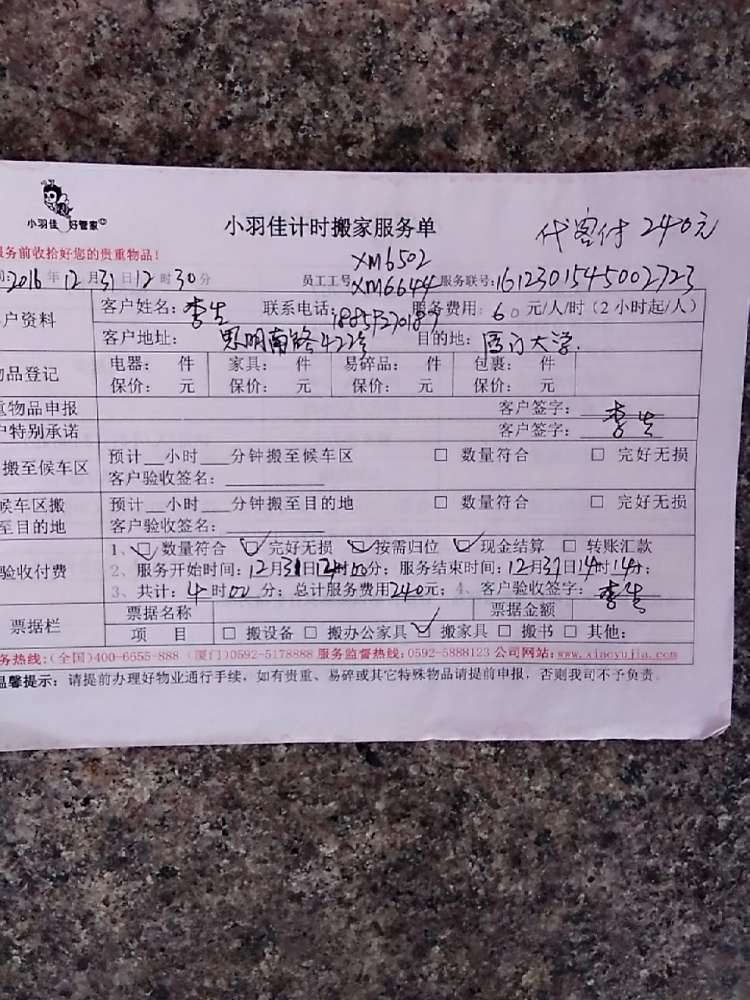 小羽佳 好管家
小羽佳计时搬家服务单
代客付 240元
服务前收拾好您的贵重物品！
XM6502
2016年12月31日12时30分 员工工号 XM6644 服务联号: 1612301545002723
户资料 客户姓名: 李生 联系电话: 服务费用: 60 元/人/时（2 小时起/人）
客户地址: 思明南路422号 目的地: 厦门大学.
品登记 电器: 件 家具: 件 易碎品: 件 包裹: 件
保价: 元 保价: 元 保价: 元 保价: 元
重物品申报 客户签字: 李生
户特别承诺 客户签字:
搬至候车区 预计__小时___分钟搬至候车区 □ 数量符合 □ 完好无损
客户验收签名:
候车区搬至目的地 预计__小时___分钟搬至目的地 □ 数量符合 □ 完好无损
客户验收签名:
验收付费 1、☑ 数量符合 ☑ 完好无损 ☑ 按需归位 ☑ 现金结算 □ 转账汇款
2、服务开始时间: 12月31日12时00分; 服务结束时间: 12月31日14时14分;
3、共计: 4时00分; 总计服务费用240元; 4、客户验收签字: 李生
票据栏 票据名称 票据金额
项 目 □ 搬设备 □ 搬办公家具 ☑ 搬家具 □ 搬书 □ 其他:
务热线:(全国)400-6655-888 (厦门)0592-5178888 服务监督热线:0592-5888123 公司网站:www.xiaoyujia.com
温馨提示: 请提前办理好物业通行手续，如有贵重、易碎或其它特殊物品请提前申报，否则我司不予负责。